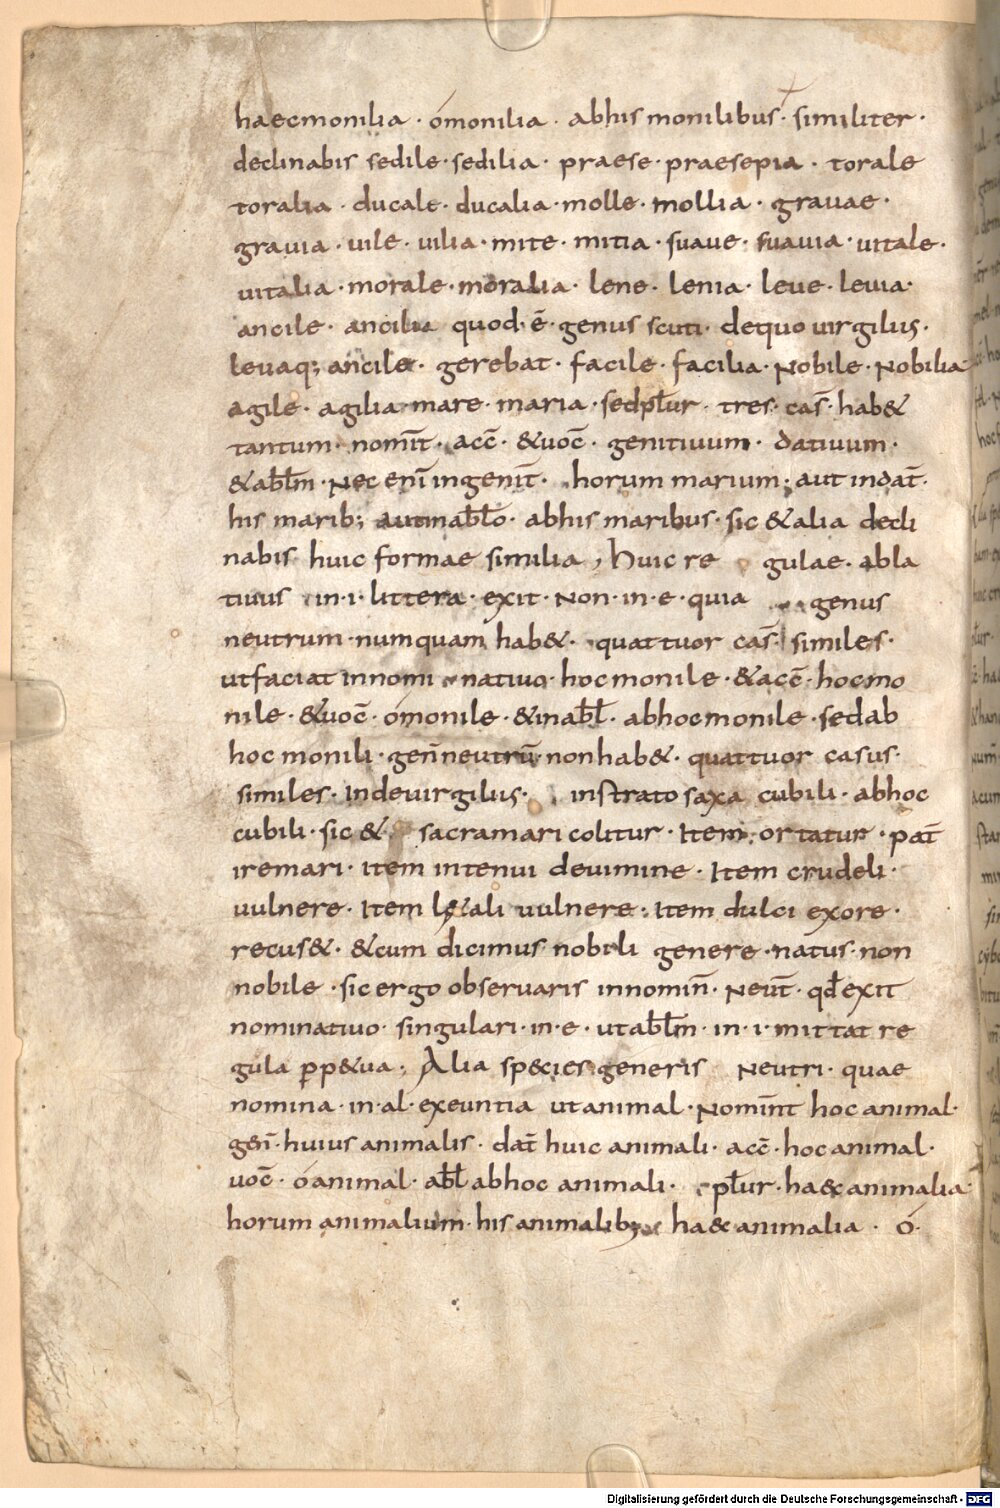 haec monilia · ó monilia · ab his monilibus · similiter ·
declinabis sedile · sedilia · praese · praesepia · torale
toralia · ducale · ducalia · molle · mollia · grauae ·
grauia · uile · uilia · mite · mitia · suaue · suauia · uitale ·
uitalia · morale · moralia · lene · lenia · leue · leuia ·
ancile · ancilia quod · ē · genus scuti · dequo uirgilius ·
leuaq; ancile · gerebat · facile · facilia · Nobile · Nobilia
agile · agilia · mare · maria · sed plur̄ · tres · cas̄ · hab&
tantum · nomit̄ · acc̄ · &uoc̄ · genitiuum · datiuum ·
&abl̄m · Nec enī in genit̄ · horum marium · aut in dat̄ ·
his marib; aut in abl̄o · ab his maribus · sic & alia decli
nabis huic formae similia , Huic re gulae · abla
tiuus in · i · littera · exit · Non · in · e · quia genus
neutrum · numquam hab& · quattuor cas̄ · similes ·
ut faciat in nomi natiuo · hoc monile · &acc̄ · hoc mo
nile · &uoc̄ · ó monile · &in abl̄ · ab hoc monile · sed ab
hoc monili · gen̄ neutrū · non hab& · quattuor casus ·
similes · Inde uirgilius · instrato saxa cubili · ab hoc
cubili · sic & sacra mari colitur · Item · ortatur · pat̄
ire mari · Item in tenui de uimine · Item crudeli ·
uulnere · Item l&ali uulnere · Item dulci ex ore ·
recus& · &cum dicimus nobili genere · natus · non
nobile · sic ergo obseruaris in nomin̄ · Neut̄ · qd̄ exit
nominatiuo · singulari · in · e · ut abl̄m · in · i · mittat re
gula p̱p&ua · Alia sp&cies generis Neutri · quae
nomina · in · al · exeuntia ut animal · Nomint̄ hoc animal ·
gen̄ · huius animalis · dat̄ huic animali · acc̄ · hoc animal ·
uoc̄ · ó animal · abl̄ ab hoc animali · plur̄ · ha&c animalia ·
horum animalium · his animalib; ha&c animalia · ó ·
Digitalisierung gefördert durch die Deutsche Forschungsgemeinschaft - DFG